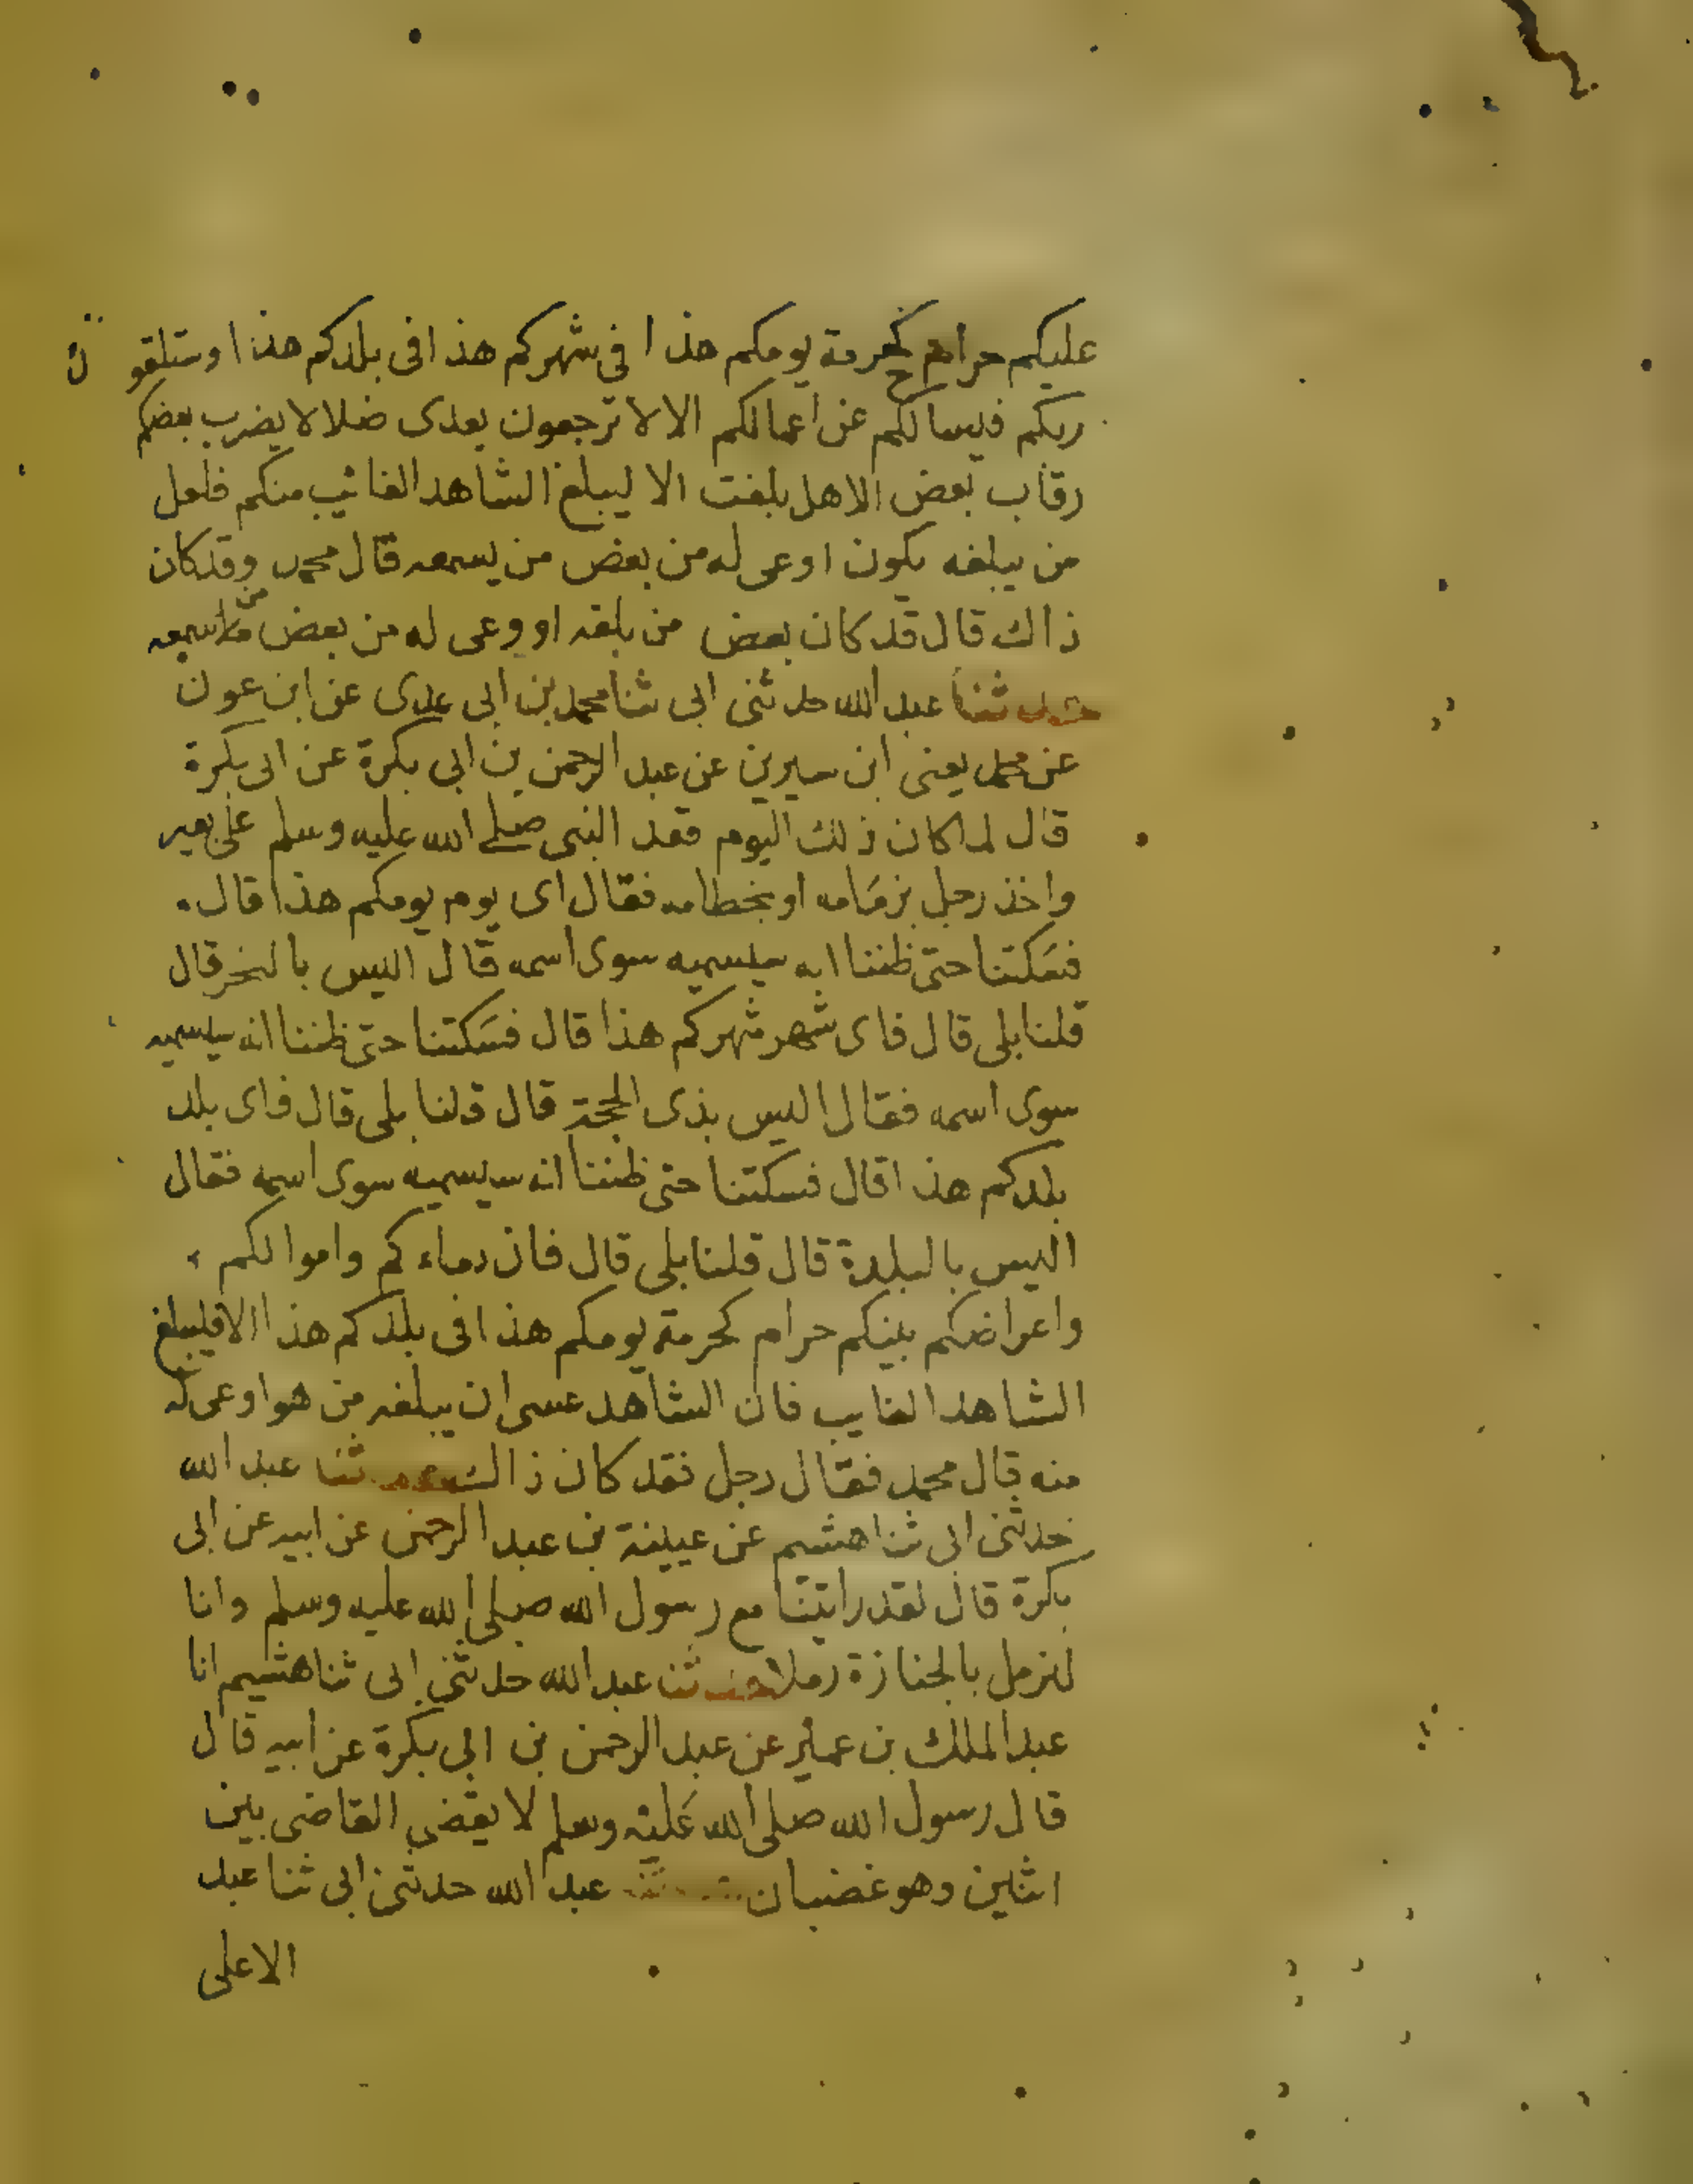 عليكم حرام كحرمة يومكم هذا في شهركم هذا في بلدكم هذا وستلقون
ربكم فيسالكم عن اعمالكم الا لا ترجعون بعدى ضلالا يضرب بعضكم
رقاب بعض الا هل بلغت الا ليبلغ الشاهد الغائب منكم فلعل
من يبلغه يكون اوعى له من بعض من يسمعه قال محمد وقد كان
ذاك قال قد كان بعض من بلغه او وعى له من بعض من سمعه
حدثنا عبد الله حدثنى ابى ثنا محمد بن ابى عدى عن ابن عون
عن محمد يعنى ابن سيرين عن عبد الرحمن بن ابى بكرة عن ابى بكرة
قال لما كان ذلك اليوم قعد النبى صلى الله عليه وسلم على بعير
واخذ رجل بزمامه او بخطامه فقال اى يوم يومكم هذا قال
فسكتنا حتى ظننا انه سيسميه سوى اسمه قال اليس بالنحر قال
قلنا بلى قال فاى شهر شهركم هذا قال فسكتنا حتى ظننا انه سيسميه
سوى اسمه فقال اليس بذى الحجة قال قلنا بلى قال فاى بلد
بلدكم هذا قال فسكتنا حتى ظننا انه سيسميه سوى اسمه فقال
اليس بالبلدة قال قلنا بلى قال فان دماءكم واموالكم
واعراضكم بينكم حرام كحرمة يومكم هذا فى بلدكم هذا الا فليبلغ
الشاهد الغايب فان الشاهد عسى ان يبلغه من هو اوعى له
منه قال محمد فقال رجل فقد كان ذاك حدثنا عبد الله
حدثنى ابى ثنا هشيم عن عيينة بن عبد الرحمن عن ابيه عن ابى
بكرة قال لقد رايتنا مع رسول الله صلى الله عليه وسلم وانا
لنرمل بالجنازة رملا حدثنا عبد الله حدثنى ابى ثنا هشيم انا
عبد الملك بن عمير عن عبد الرحمن بن ابى بكرة عن ابيه قال
قال رسول الله صلى الله عليه وسلم لا يقضى القاضى بين
اثنين وهو غضبان حدثنا عبد الله حدثنى ابى ثنا عبد
الاعلى